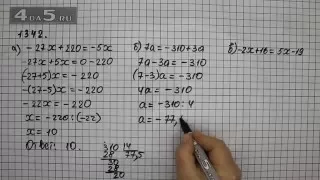 4DA5.RU
1342.
а) -27x+220=-5x
-27x+5x=0-220
(-27+5)x=-220
-(27-5)x=-220
-22x=-220
x=-220:(-22)
x=10
Ответ: 10.
б) 7a=-310+3a
7a-3a=-310
(7-3)a=-310
4a=-310
a=-310:4
a=-77,
310 4
28 77,5
30
28
20
в) -2x+16=5x-19